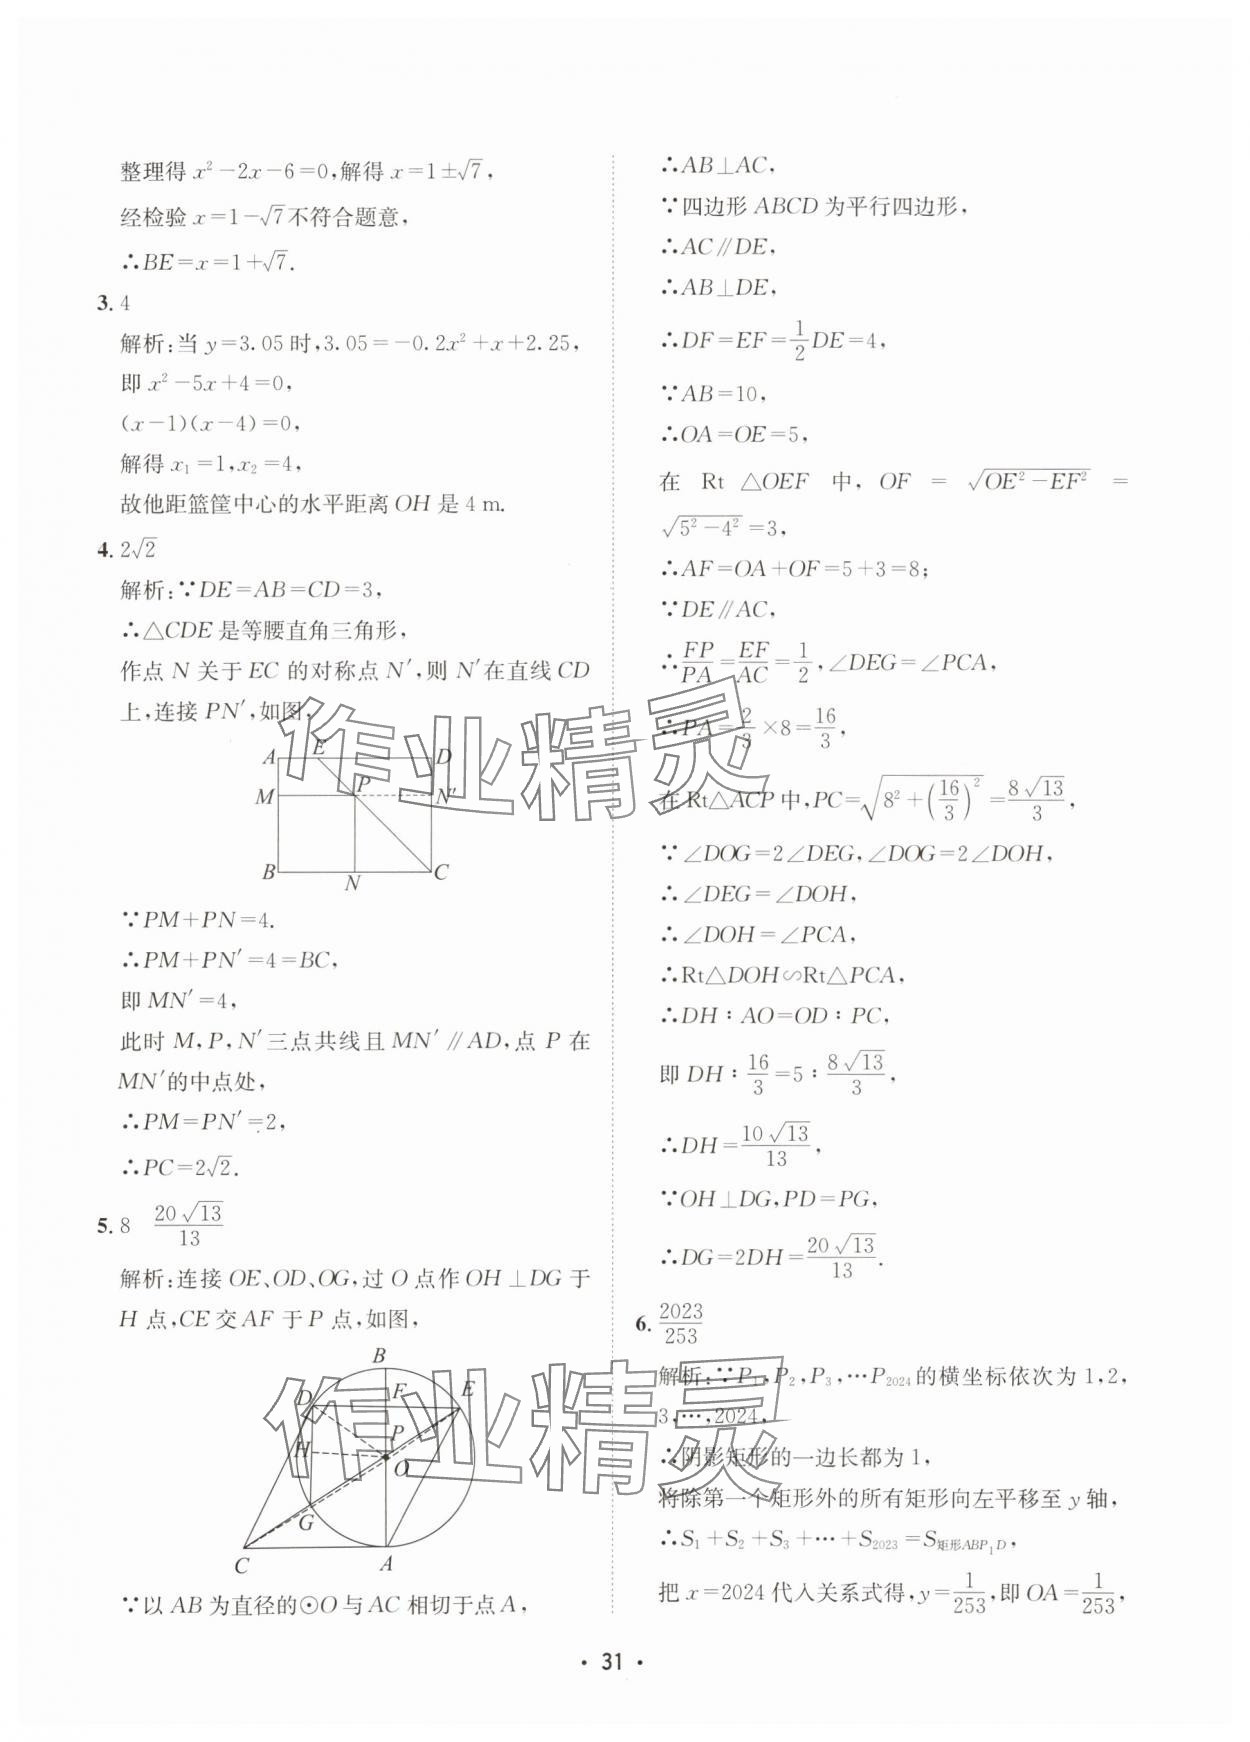 整理得 x²-2x-6=0,解得 x=1±√7,
经检验 x=1-√7不符合题意,
∴BE=x=1+√7.
3. 4
解析:当 y=3.05 时,3.05=-0.2x²+x+2.25,
即 x²-5x+4=0,
(x-1)(x-4)=0,
解得 x₁=1,x₂=4,
故他距篮筐中心的水平距离 OH 是 4 m.
4. 2√2
解析:∵DE=AB=CD=3,
∴△CDE 是等腰直角三角形,
作点 N 关于 EC 的对称点 N′,则 N′在直线 CD
上,连接 PN′,如图,
A E D
M P N′
B N C
∵PM+PN=4.
∴PM+PN′=4=BC,
即 MN′=4,
此时 M,P,N′三点共线且 MN′∥AD,点 P 在
MN′的中点处,
∴PM=PN′=2,
∴PC=2√2.
5. 8 20√13/13
解析:连接 OE、OD、OG,过 O 点作 OH⊥DG 于
H 点,CE 交 AF 于 P 点,如图,
B
D F E
H P
O
G
C A
∵以 AB 为直径的⊙O 与 AC 相切于点 A,
∴AB⊥AC,
∵四边形 ABCD 为平行四边形,
∴AC∥DE,
∴AB⊥DE,
∴DF=EF=1/2DE=4,
∵AB=10,
∴OA=OE=5,
在 Rt △OEF 中, OF = √(OE²-EF²) =
√(5²-4²)=3,
∴AF=OA+OF=5+3=8;
∵DE∥AC,
∴FP/PA=EF/AC=1/2,∠DEG=∠PCA,
∴PA=2/3×8=16/3,
在 Rt△ACP 中,PC=√(8²+(16/3)²)=8√13/3,
∵∠DOG=2∠DEG,∠DOG=2∠DOH,
∴∠DEG=∠DOH,
∴∠DOH=∠PCA,
∴Rt△DOH∽Rt△PCA,
∴DH∶AO=OD∶PC,
即 DH∶16/3=5∶8√13/3,
∴DH=10√13/13,
∵OH⊥DG,PD=PG,
∴DG=2DH=20√13/13.
6. 2023/253
解析:∵P₁,P₂,P₃,…P₂₀₂₄的横坐标依次为 1,2,
3,…,2024,
∴阴影矩形的一边长都为 1,
将除第一个矩形外的所有矩形向左平移至 y 轴,
∴S₁+S₂+S₃+…+S₂₀₂₃=S矩形ABP₁D,
把 x=2024 代入关系式得,y=1/253,即 OA=1/253,
· 31 ·
作业精灵
作业精灵